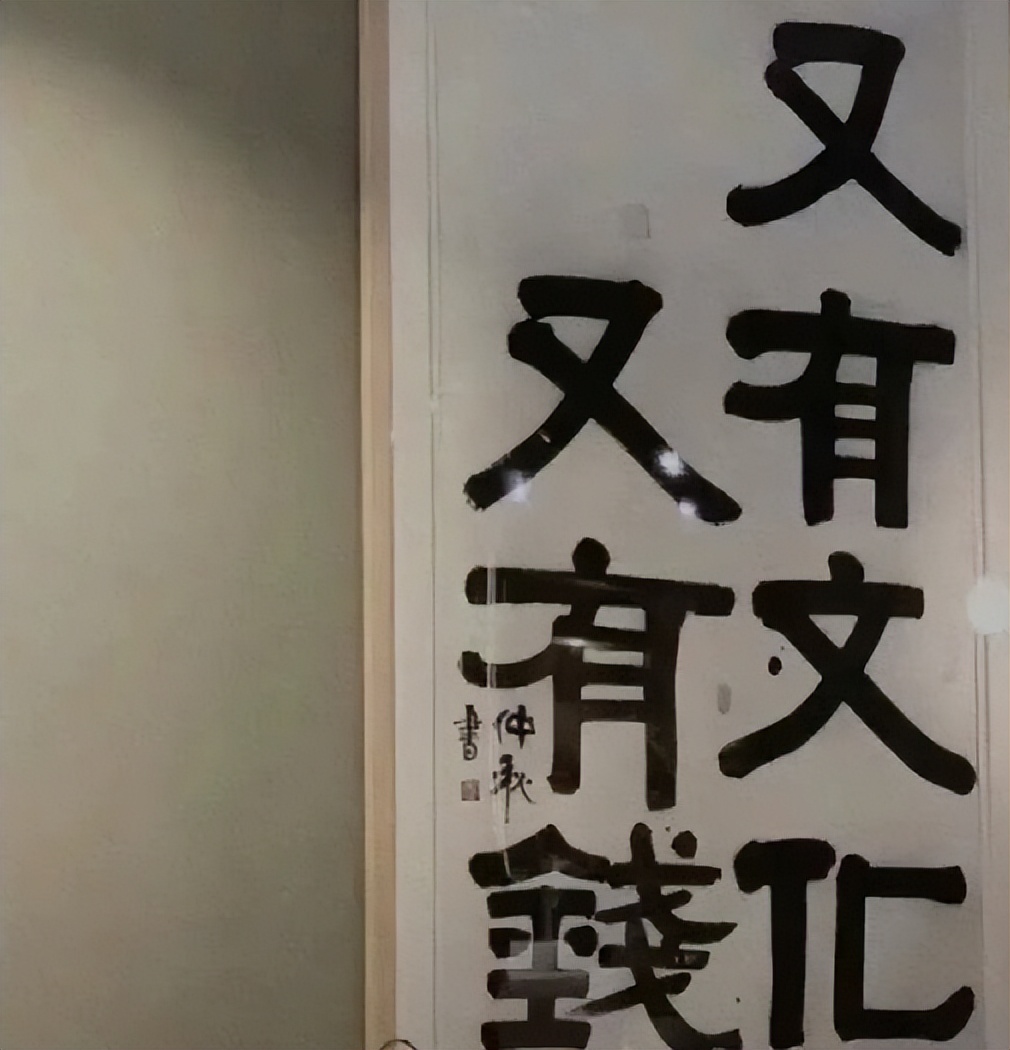 又有文化
又有錢
仲承
書